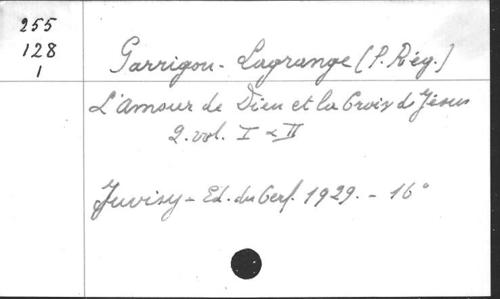 255
128
1
Garrigou-Lagrange (P. Rég.)
L'amour de Dieu et la Croix de Jésus
2. vol. I & II
Juvisy - Ed. du Cerf. 1929. - 16°